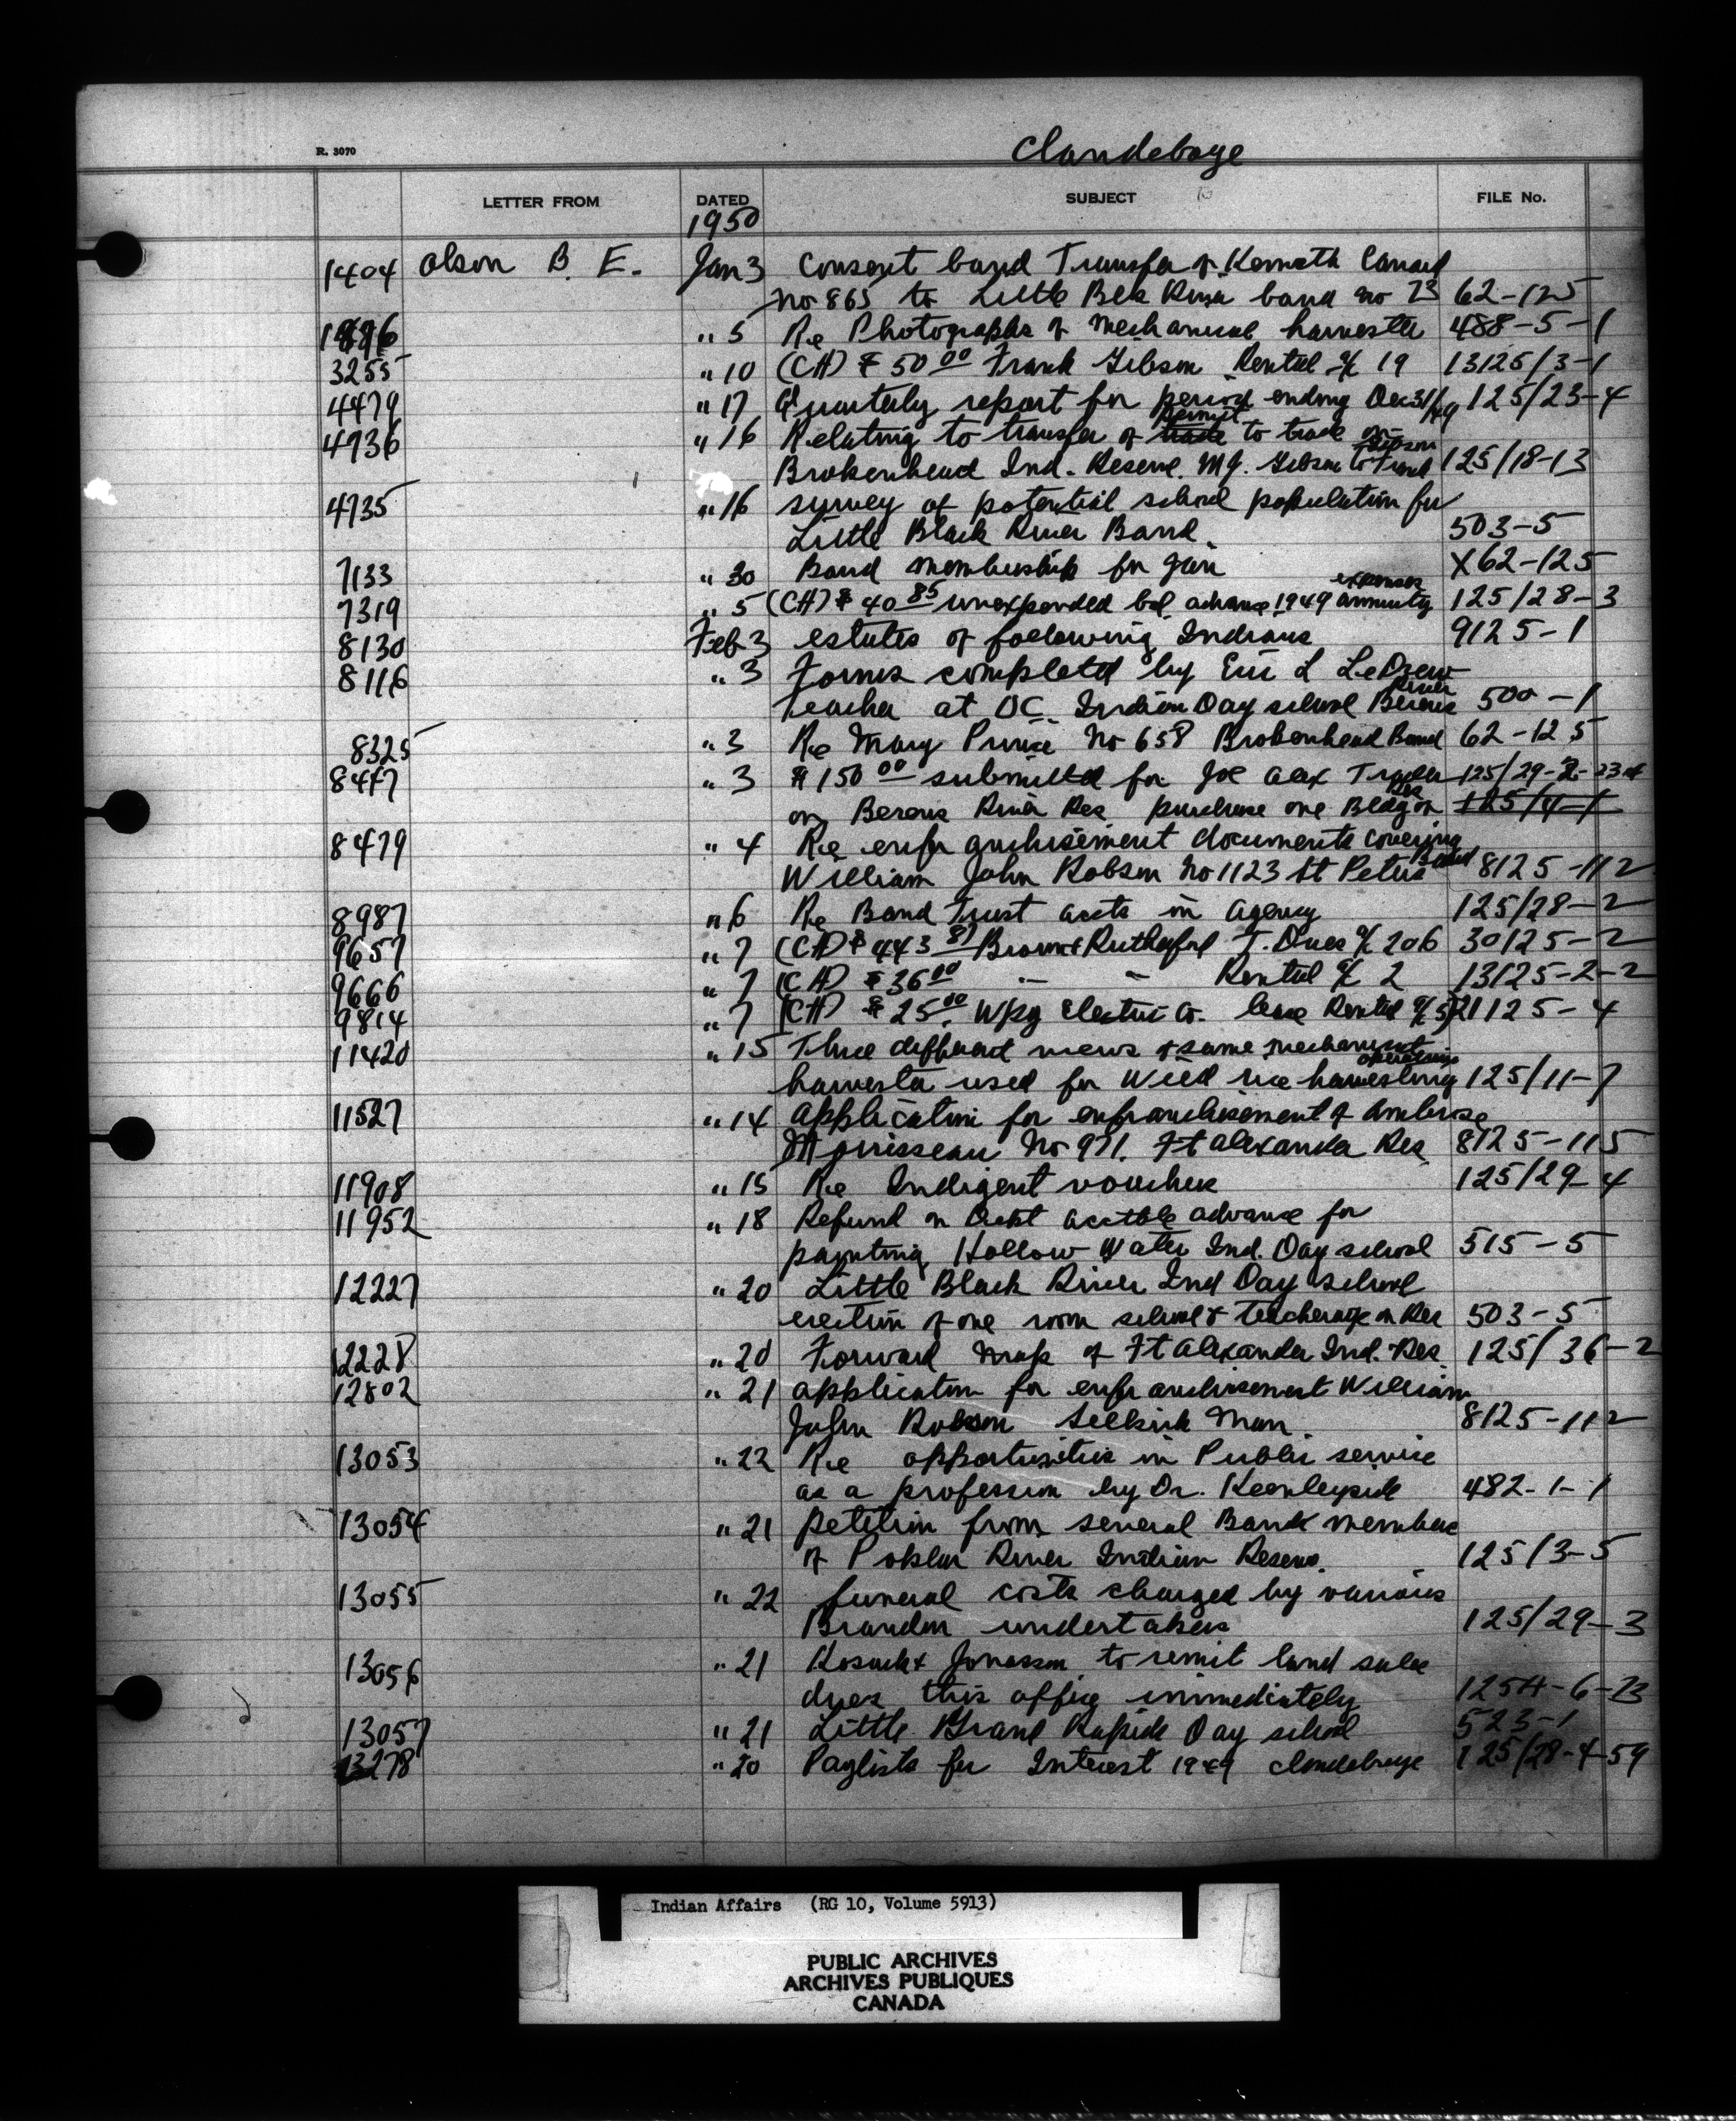 R. 3070
Clandeboye
LETTER FROM DATED SUBJECT FILE No.
1950
1404 Olson B. E. Jan 3 Consent band Transfer of Kenneth
No 865 to Little Blk River band no 73 62-125
" 5 Re Photographs of mechanical harvester 488-5-1
3255 " 10 (CH) $50.00 Frank Gibson Rental a/c 19 13125/3-1
4479 " 17 Quarterly report for period ending Dec 31/49 125/23-4
4736 " 16 Relating to transfer of trade permit to trade on
Brokenhead Ind. Reserve. M.J. Gibson to Frank Gibson 125/18-13
4735 " 16 survey of potential school population for
Little Black River Band. 503-5
7133 " 30 Band membership for Jan X62-125
7319 " 5 (CH) $40.85 unexpended bal. advance 1949 annuity expenses 125/28-3
8130 Feb 3 estates of following Indians 9125-1
8116 " 3 Forms completed by Eric L LeDrew
teacher at UC Indian Day school Berens River 500-1
8325 " 3 Re Mary Prince No 658 Brokenhead Band 62-125
8447 " 3 $150.00 submitted for Joe Alex Trader 125/29-2-
on Berens River Res purchase one Bldg on Res 125/4-1
8479 " 4 Re enfranchisement documents covering
William John Robson No 1123 St Peters Band 8125-112
8987 " 6 Re Band Trust accts in agency 125/28-2
9657 " 7 (CH) $443.81 Brown & Rutherford T. Dues a/c 206 30125-2
9666 " 7 (CH) $36.00 " " Rental a/c 2 13125-2-2
9814 " 7 (CH) $25.00 Wpg Electric Co. lease Rental a/c 5 21125-4
11420 " 15 Three different views of same mechanical
harvester used for wild rice harvesting operations 125/11-7
11527 " 14 application for enfranchisement of Ambrose
Morrisseau No 971. Ft Alexander Res 8125-115
11908 " 15 Re Indigent vouchers 125/29-4
11952 " 18 Refund on acctble advance for
painting Hollow Water Ind. Day school 515-5
12227 " 20 Little Black River Ind Day school
erection of one room school & teacherage on Res 503-5
12228 " 20 Forward map of Ft Alexander Ind. Res. 125/36-2
12802 " 21 application for enfranchisement William
John Robson Selkirk Man. 8125-112
13053 " 22 Re opportunities in Public service
as a profession by Dr. Keenleyside 482-1-1
13054 " 21 petition from several Band members
of Poplar River Indian Reserve. 125/3-5
13055 " 22 funeral costs charged by various
Brandon undertakers 125/29-3
13056 " 21 & Jonasson to remit land sale
dues this office immediately
13057 " 21 Little Grand Rapids Day school 523-1
13278 " 20 Paylists for Interest 1949 Clandeboye 125/28-4-59
Indian Affairs (RG 10, Volume 5913)
PUBLIC ARCHIVES
ARCHIVES PUBLIQUES
CANADA